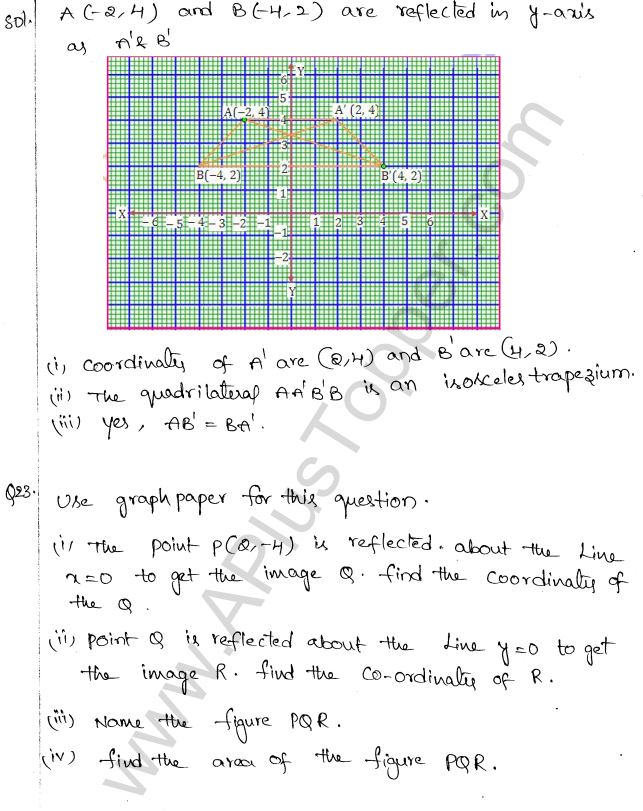 Sol). A(-2,4) and B(-4,2) are reflected in y-axis
as A'& B'
Y
6
5
A(−2, 4) A' (2, 4)
4
3
B(−4, 2) 2 B'(4, 2)
1
X −6 −5 −4 −3 −2 −1 1 2 3 4 5 6 X
−1
−2
Y
(i) Coordinates of A' are (2,4) and B' are (4,2).
(ii) The quadrilateral AA'B'B is an isosceles trapezium.
(iii) Yes, AB' = BA'.
Q23. Use graph paper for this question.
(i) The point P(2,-4) is reflected. about the Line
x=0 to get the image Q. find the coordinates of
the Q.
(ii) point Q is reflected about the Line y=0 to get
the image R. find the Co-ordinates of R.
(iii) Name the figure PQR.
(iv) find the area of the figure PQR.
www.APlusTopper.com